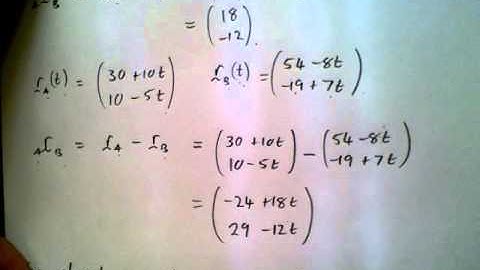 = (18
-12).
r_A(t) = (30 + 10t
10 - 5t) r_B(t) = (54 - 8t
-19 + 7t)
_A r_B = r_A - r_B = (30 + 10t
10 - 5t) - (54 - 8t
-19 + 7t)
= (-24 + 18t
29 - 12t)